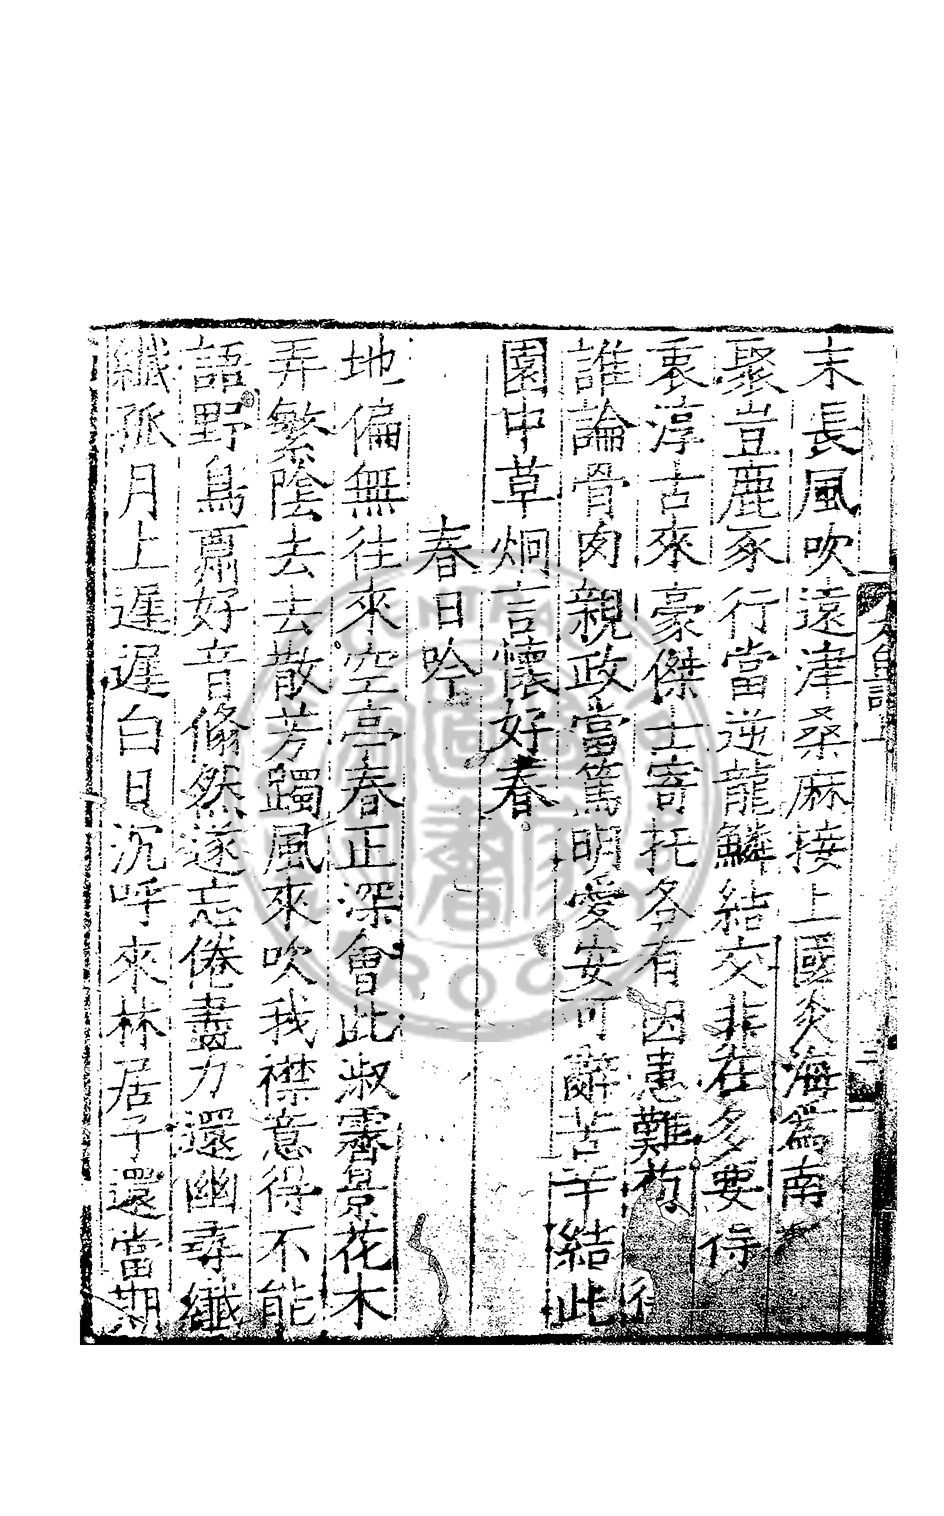 末長風吹遠津桑麻接上國炎海為南
聚豈鹿豕行當逆龍鱗結交非在多要得
衷淳古來豪傑士寄托各有因患難苟
誰論骨肉親政當篤明愛安可辭苦辛結此
園中草炯言懷好春
春日吟
地偏無往來空亭春正深會此淑霽景花木
弄繁陰去去散芳躅風來吹我襟意得不能
語野鳥賈好音翛然遂忘倦盡力還幽尋纖
纖孤月上遲遲白日沉呼來林居子還當期